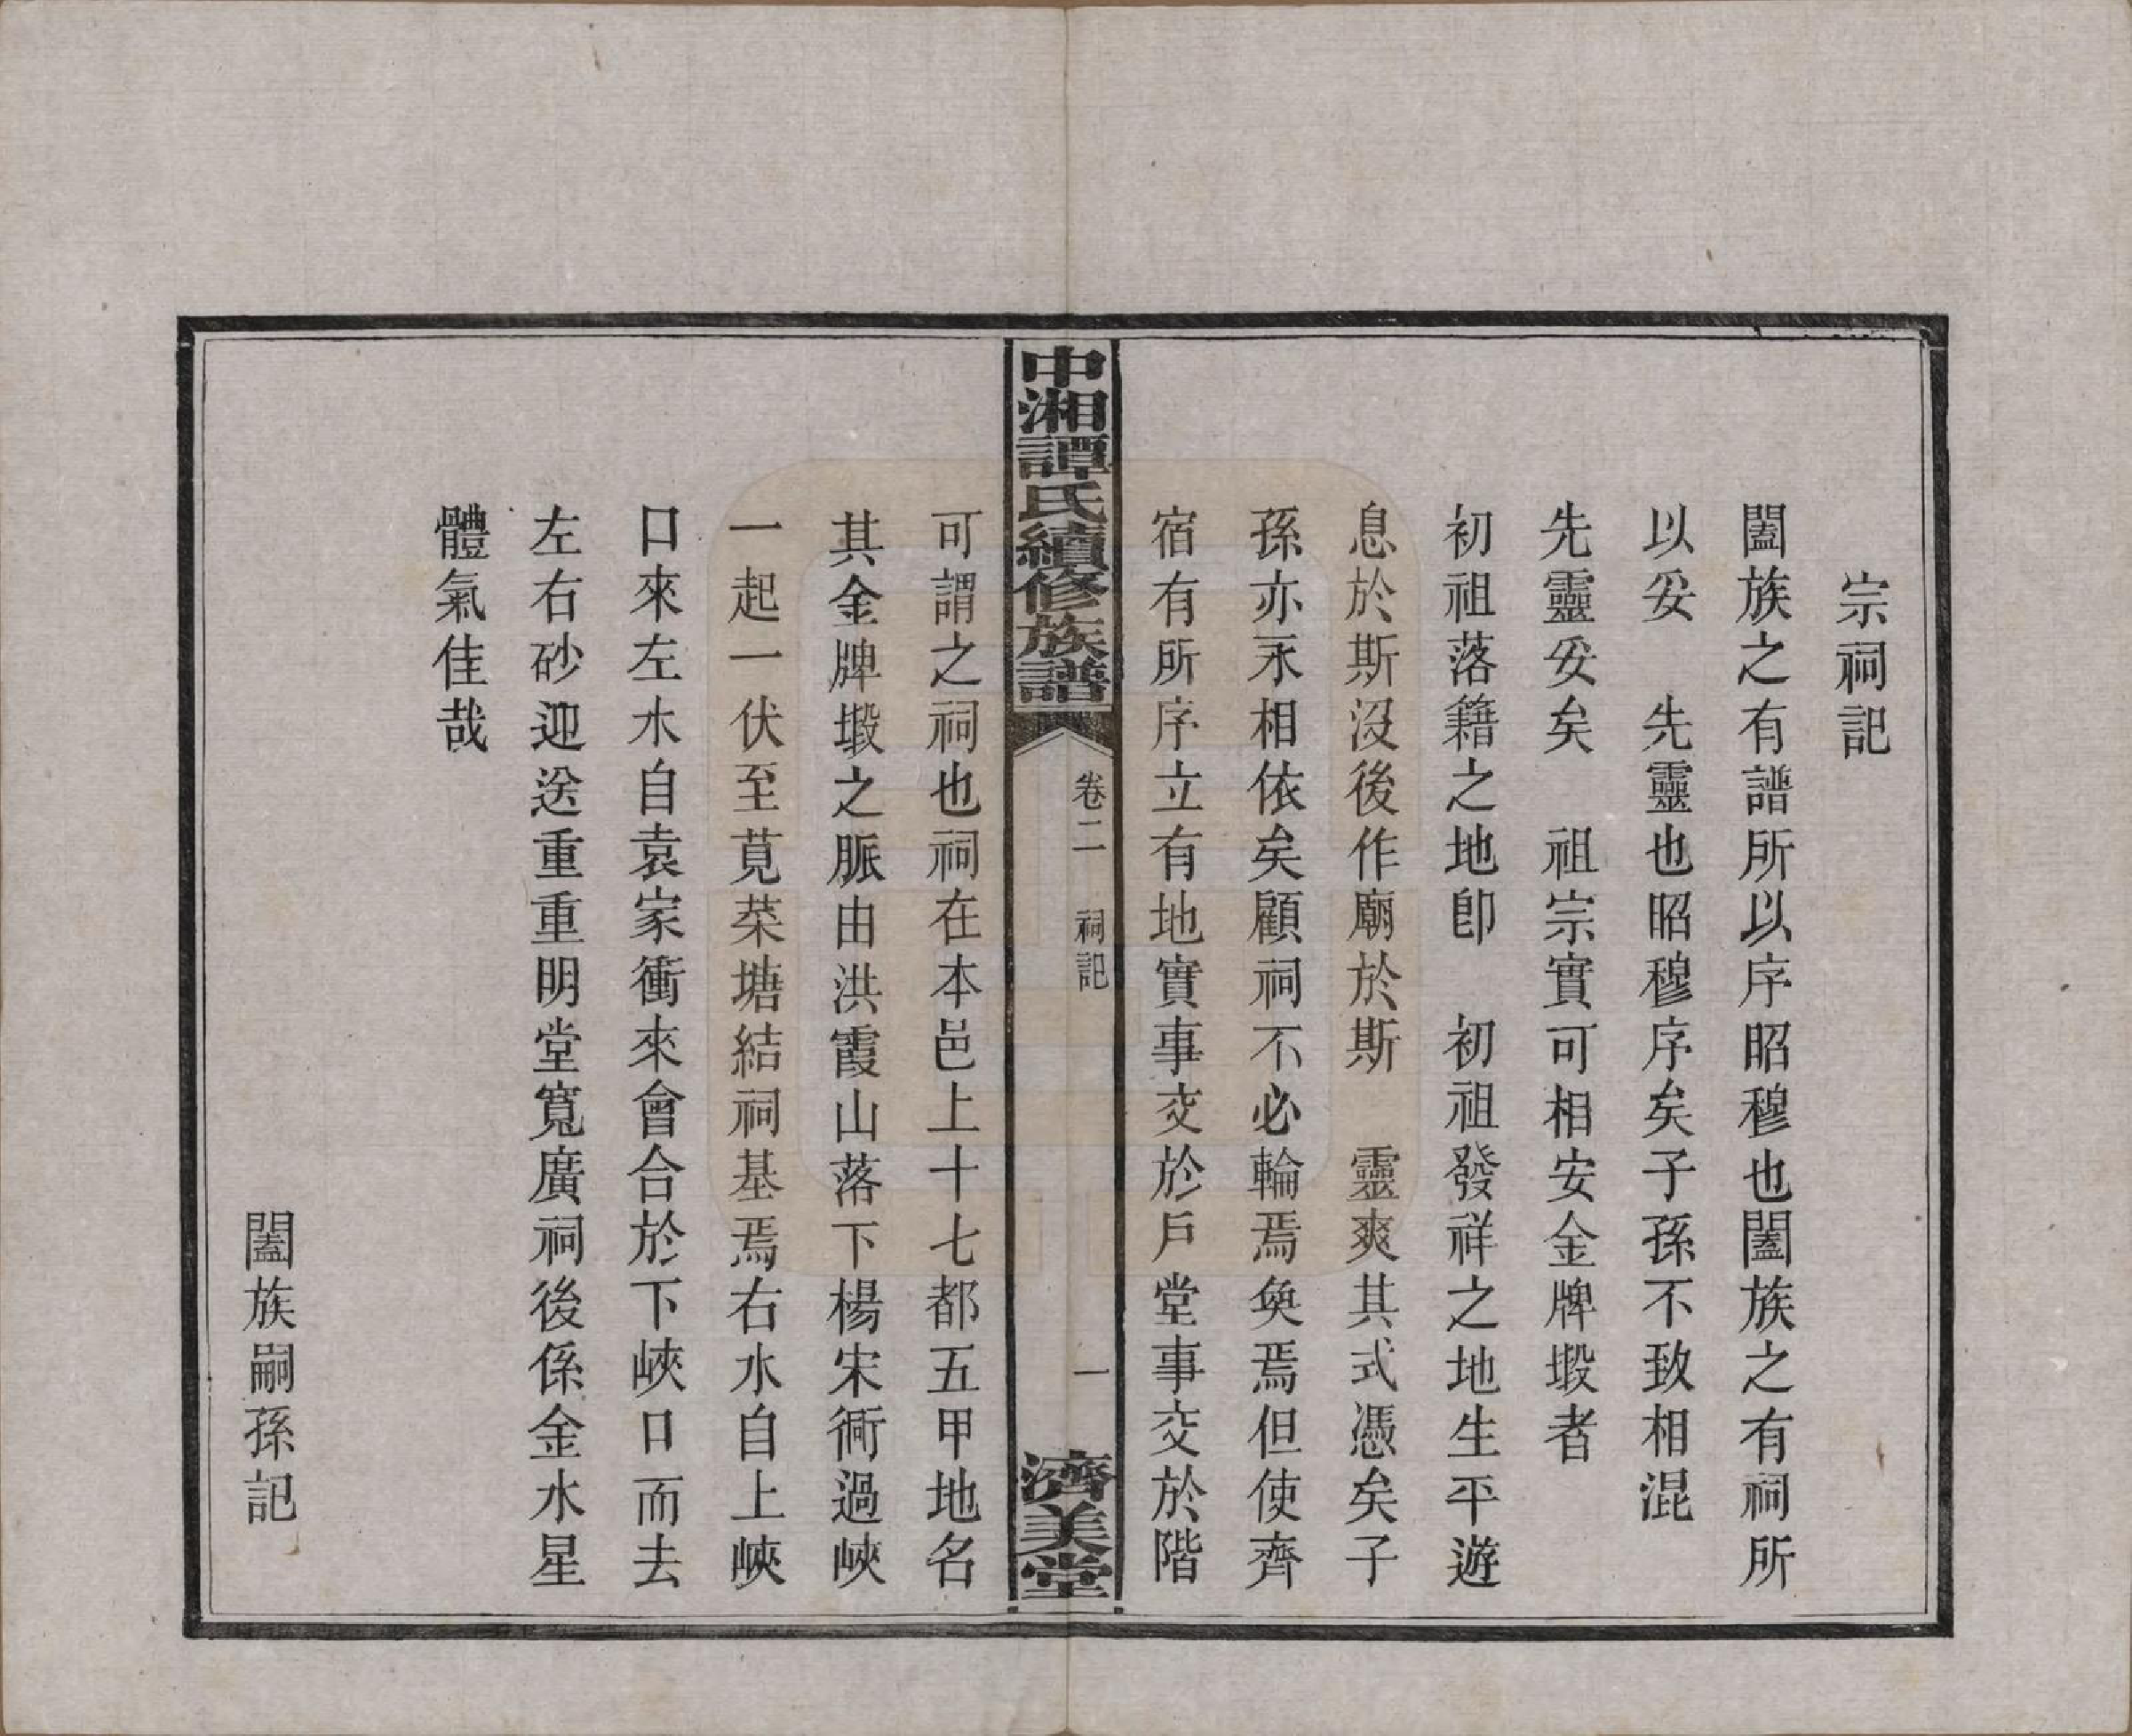 宗祠記
闔族之有譜所以序昭穆也闔族之有祠所
以妥　先靈也昭穆序矣子孫不致相混
先靈妥矣　祖宗實可相安金牌塅者
初祖落籍之地卽　初祖發祥之地生平遊
息於斯沒後作廟於斯　靈爽其式憑矣子
孫亦永相依矣顧祠不必輪焉奐焉但使齊
宿有所序立有地實事交於戶堂事交於階
中湘譚氏續修族譜
卷二　祠記
一
濟美堂
可謂之祠也祠在本邑上十七都五甲地名
其金牌塅之脈由洪霞山落下楊宋衕過峽
一起一伏至莧菜塘結祠基焉右水自上峽
口來左水自袁家衝來會合於下峽口而去
左右砂迎送重重明堂寬廣祠後係金水星
體氣佳哉
闔族嗣孫記